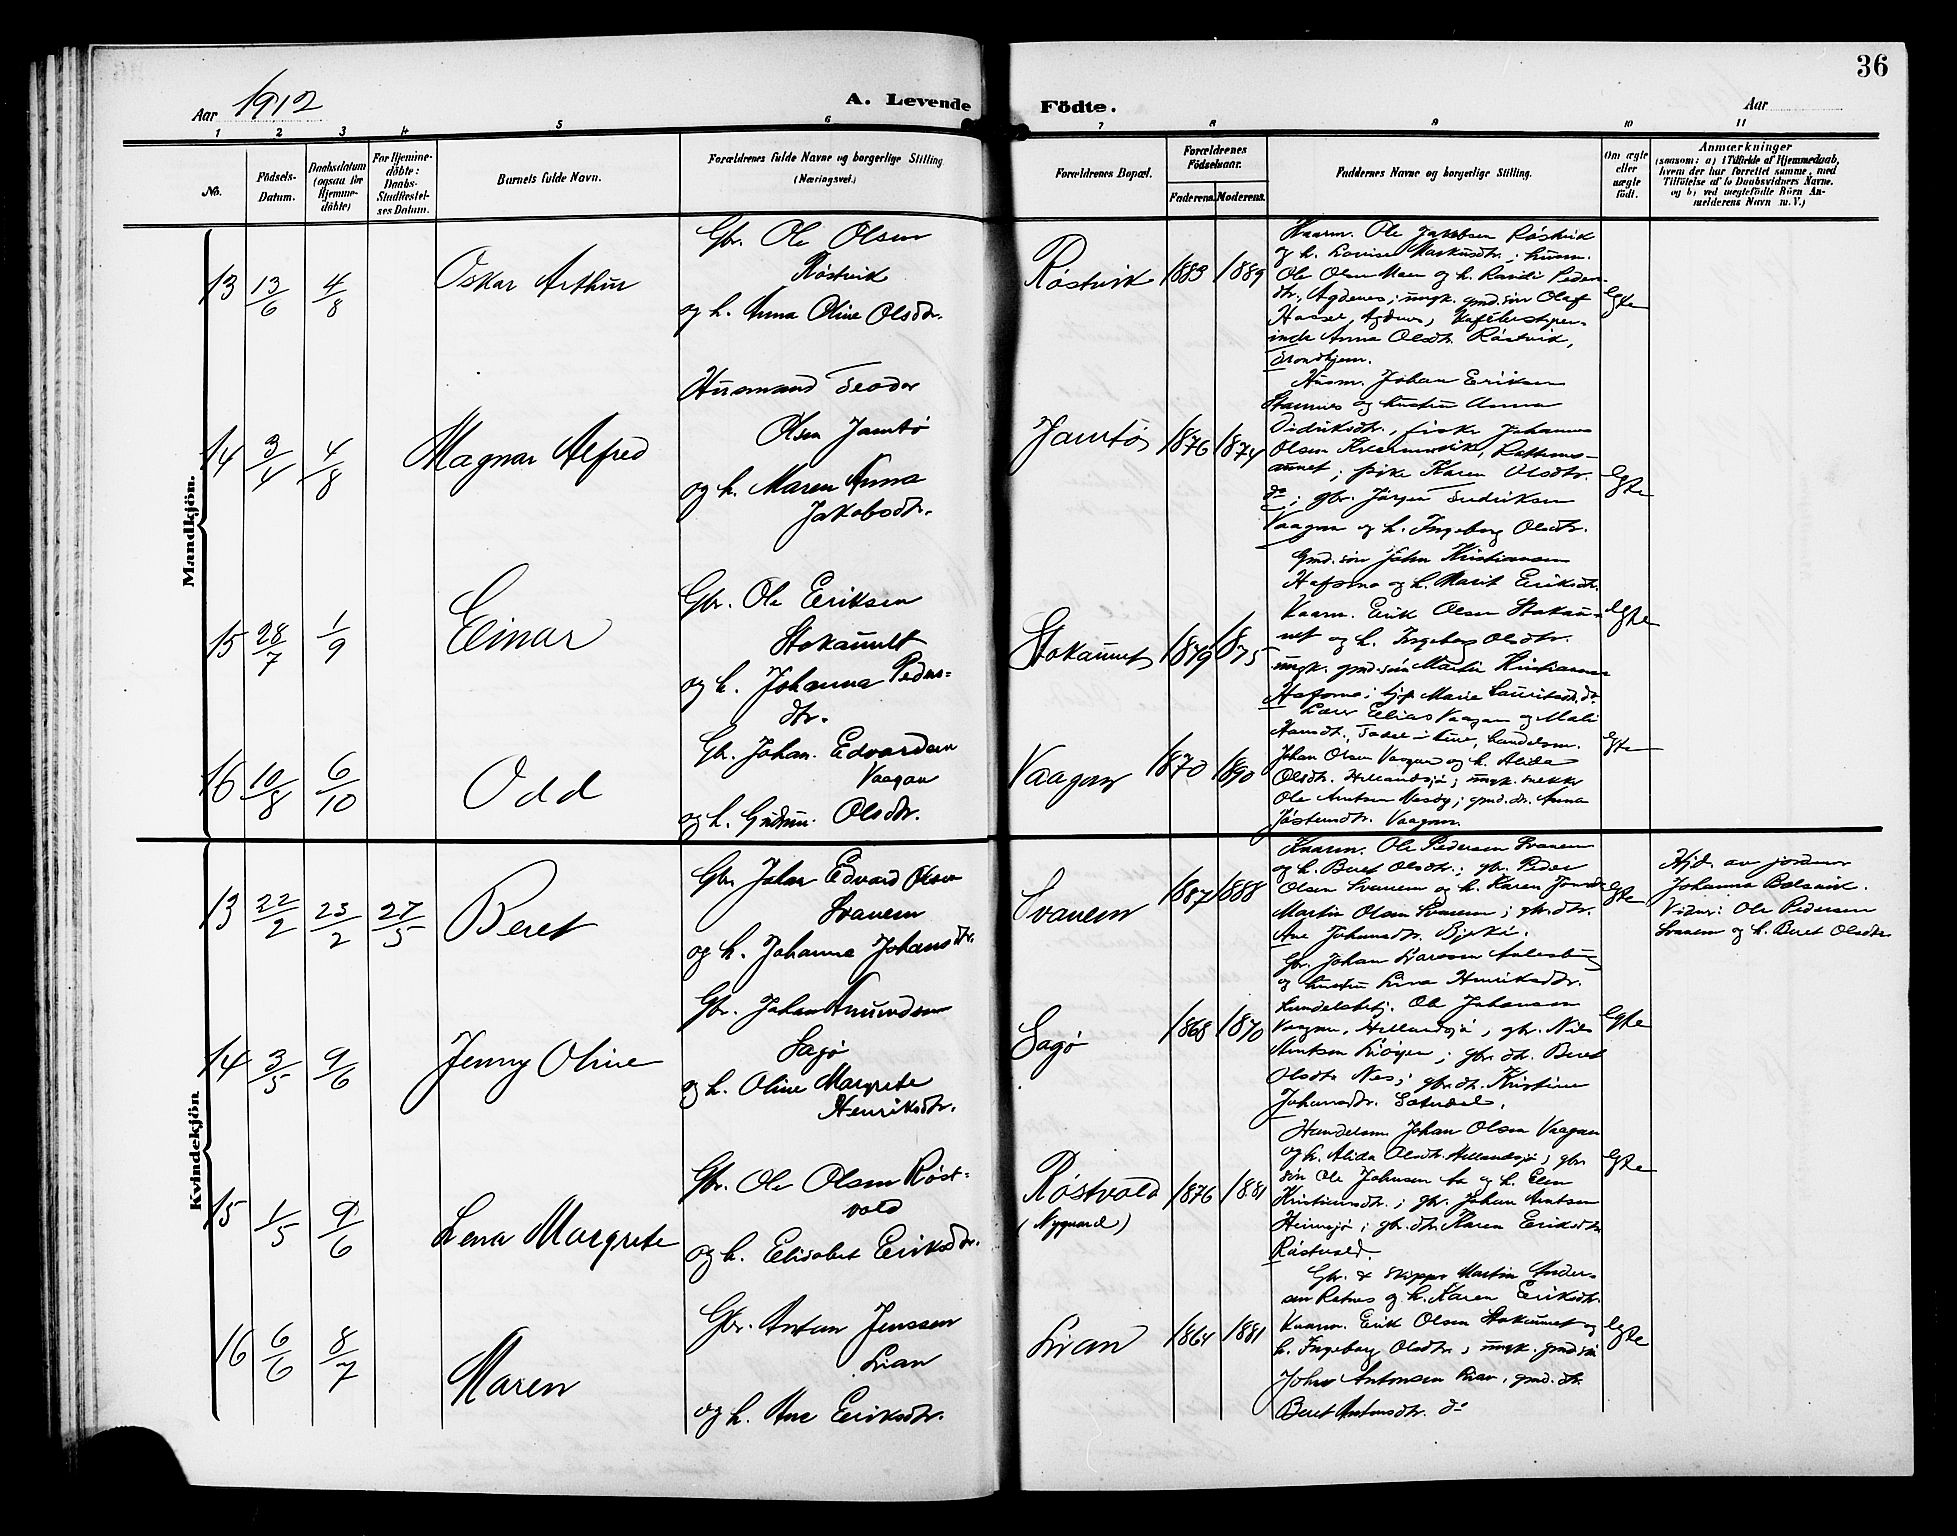 36
Aar 1912
A. Levende Födte.
Aar
1 2 3 4 5 6 7 8 9 10 11
No.
Födsels-Datum.
Daabsdatum (ogsaa for Hjemme-döbte)
For Hjemme-döbte: Daabs-Stadfæstel-ses Datum.
Barnets fulde Navn.
Forældrenes fulde Navne og borgerlige Stilling (Næringsvei.)
Forældrenes Bopæl.
Forældrenes Födselsaar.
Faderens. Moderens.
Faddernes Navne og borgerlige Stilling.
Om ægte eller uægte födt.
Anmærkninger
(saasom: a) i Tilfælde af Hjemmedaab, hvem der har forrettet samme, med Tilföielse af to Daabsvidners Navne. og b) ved uægtefödte Börn Anmelderens Navn m. V.)
Mandkjön.
13 13/6 4/8 Oskar Arthur
Gbr. Ole Olsen
Røstvik
og h. Anna Oline Olsdtr.
Røstvik 1883 1889
Kaarm. Ole Jakobsen Røstvik
og h. Lovise Markusdtr; husm.
Ole Olsen Moen og h. Randi Peders-
dtr, Agdenes; ungk. gmd.søn Olaf
Hassel, Agdenes,
Anna Olsdtr. Røstvik,
Trondhjem.
Egte
14 3/4 4/8 Magnar Alfred
Husmand Teodor
Olsen Jamtø
og h. Maren Anna
Jakobsdtr.
Jamtø 1876 1874
Husm. Johan Eriksen
Stamnes og hustru Anna
Didriksdtr., fisker Johannes
Olsen
pike Karen Olsdtr.
do; gbr. Jørgen Fredriksen
Vaagan og h. Ingeborg Olsdtr.
Egte
15 28/7 1/9 Einar
Gbr. Ole Eriksen
Stokaunet
og h. Johanna Peders-
dtr.
Stokaunet 1879 1875
Gmd.søn John Kristiansen
Hafsmo og h. Marit Eriksdtr.
Kaarm. Erik Olsen Stokau-
net og h. Ingeborg Olsdtr.
ungk. gmd.søn Martin Kristiansen
Hafsmo; Marie Lauritsdtr. do
Egte
16 10/8 6/10 Odd
Gbr. Johan Edvardsen
Vaagan
og h. Gudrun Olsdtr.
Vaagan 1870 1890
Lærer Elias Vaagan og Mali
Hansdtr, handelsm.
Johan Olsen Vaagan og h. Alida
Olsdtr. Hellandsjø; ungk. snekker
Ole Arntsen Nesøy; gmd.dtr. Anna
Jostensdtr. Vaagan.
Egte
Kvindekjön
13 22/2 23/2 27/5 Beret
Gbr. Johan Edvard Olsen
Svanem
og h. Johanna Johansdtr.
Svanem 1887 1888
Kaarm. Ole Pedersen Svanem
og h. Beret Olsdtr; gbr. Peder
Olsen Svanem og h. Karen Jonsdtr
Martin Olsen Svanem; gbr.dtr.
Ane Johansdtr.
Egte
Hjd. av jordmor
Johanna Balsvik.
Vidner: Ole Pedersen
Svanem og h. Beret Olsdtr.
14 3/5 9/6 Jenny Oline
Gbr. Johan Amundsen
Sagø
og h. Oline Margrete
Henriksdtr.
Sagø 1868 1870
Gbr. Johan Larssen
og hustru Lina Henriksdtr.
handelsbetj. Ole Johansen
Vaagan, Hellandsjø, gbr. Nils
Arntsen; gbr.dtr. Beret
Olsdtr. Nes; gbr.dtr. Kristine
Johansdtr. Sæterdal.
Egte
15 1/5 9/6 Lena Margrete
Gbr. Ole Olsen Røst-
vold
og h. Elisabet Eriksdtr.
Røstvold
(Nygaard) 1876 1881
Handelsm. Johan Olsen Vaagan
og h. Alida Olsdtr. Hellandsjø; gbr.
søn Ole Johnsen og h. Elen
Kristiansdtr.; gbr. Johan Arntsen
Heimsjø; gbr.dtr. Karen Eriksdtr
Røstvold.
Egte
16 6/6 8/7 Maren
Gbr. Anton Jenssen
Lian
og h. Ane Eriksdtr.
Lian 1864 1881
Gbr. & skipper Martin Ander-
sen Røtnes og h. Karen Eriksdtr.
Kaarm. Erik Olsen Stokaunet og
h. Ingeborg Olsdtr; ungk. gmd.søn
John Antonsen Lian, gmd.dtr.
Beret Antonsdtr. do
Egte